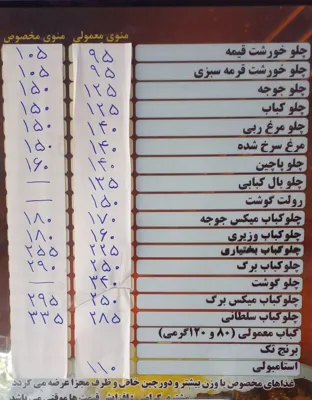 منوی معمولی منوی مخصوص
چلو خورشت قیمه ۹۵ ۱۰۵
چلو خورشت قرمه سبزی ۹۵ ۱۰۵
چلو جوجه ۱۲۵ ۱۵۰
چلو کباب ۱۲۵ ۱۵۰
چلو مرغ ربی ۱۴۰ ۱۵۰
مرغ سرخ شده ۱۴۰ ۱۵۰
چلو پاچین ۱۴۰ ۱۶۰
چلو بال کبابی ۱۳۵ —
رولت گوشت ۱۵۰ —
چلوکباب میکس جوجه ۱۷۰ ۱۸۰
چلوکباب وزیری ۱۶۰ ۱۸۰
چلوکباب بختیاری ۲۲۵ ۲۵۵
چلوکباب برگ ۲۵۰ ۲۹۰
چلو گوشت ۳۴۰ —
چلوکباب میکس برگ ۲۵۰ ۲۹۵
چلوکباب سلطانی ۲۸۵ ۳۳۵
کباب معمولی (۸۰ و ۱۲۰گرمی)
برنج تک
استامبولی ۱۱۰
غذاهای مخصوص با وزن بیشتر و دورچین حاقل و ظرف مجزا عرضه می گردد